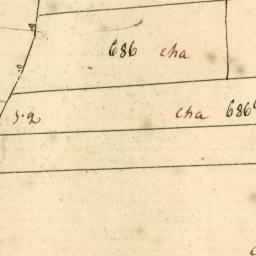 686 cha
cha 686